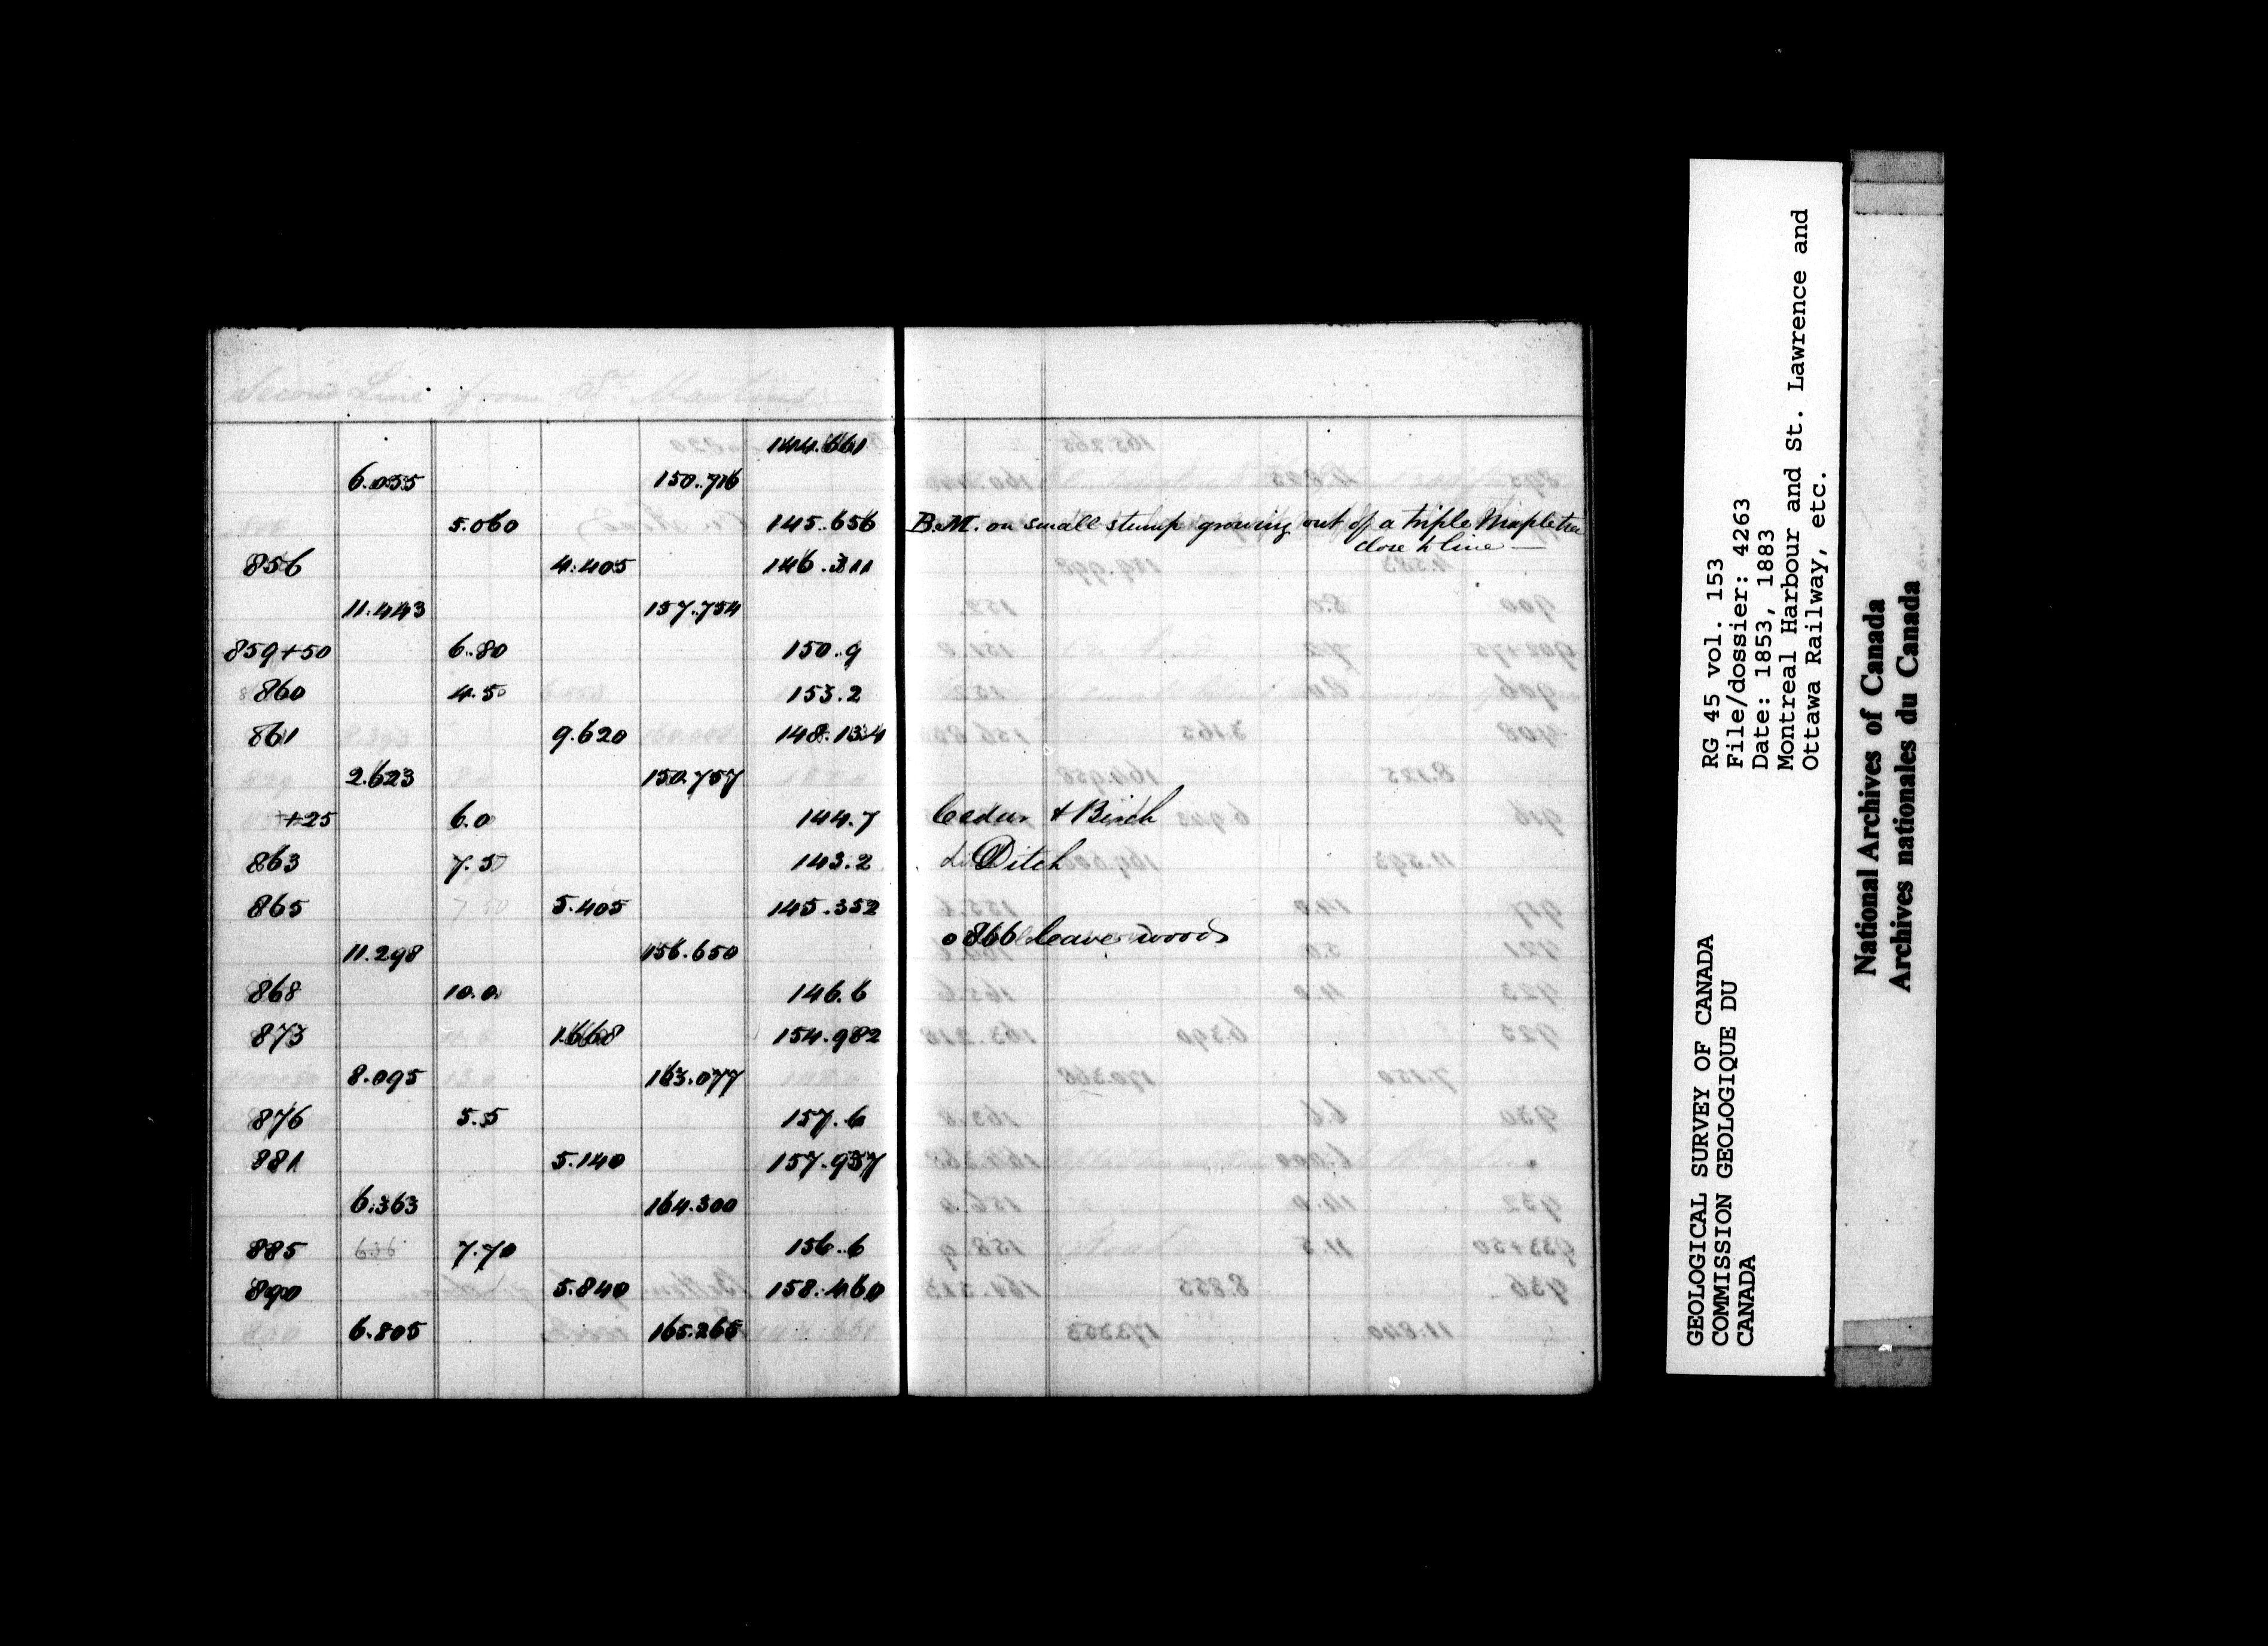 Second Line from St. Martins
144.661
6.055 150.716
5.060 145.656 B.M. on small stump growing out of a triple Maple tree
close to line —
856 4.405 146.311
11.443 157.754
859+50 6.80 150.9
860 4.50 153.2
861 9.620 148.134
2.623 150.757
+25 6.0 144.7 Cedar & Birch
863 7.50 143.2 Ditch
865 5.405 145.352
o 866 leave woods
11.298 156.650
868 10.0 146.6
873 1.668 154.982
8.095 163.077
876 5.5 157.6
881 5.140 157.937
6.363 164.300
885 636 7.70 156.6
890 5.840 158.460
6.805 165.265
GEOLOGICAL SURVEY OF CANADA
COMMISSION GEOLOGIQUE DU
CANADA
RG 45 vol. 153
File/dossier: 4263
Date: 1853, 1883
Montreal Harbour and St. Lawrence and
Ottawa Railway, etc.
National Archives of Canada
Archives nationales du Canada